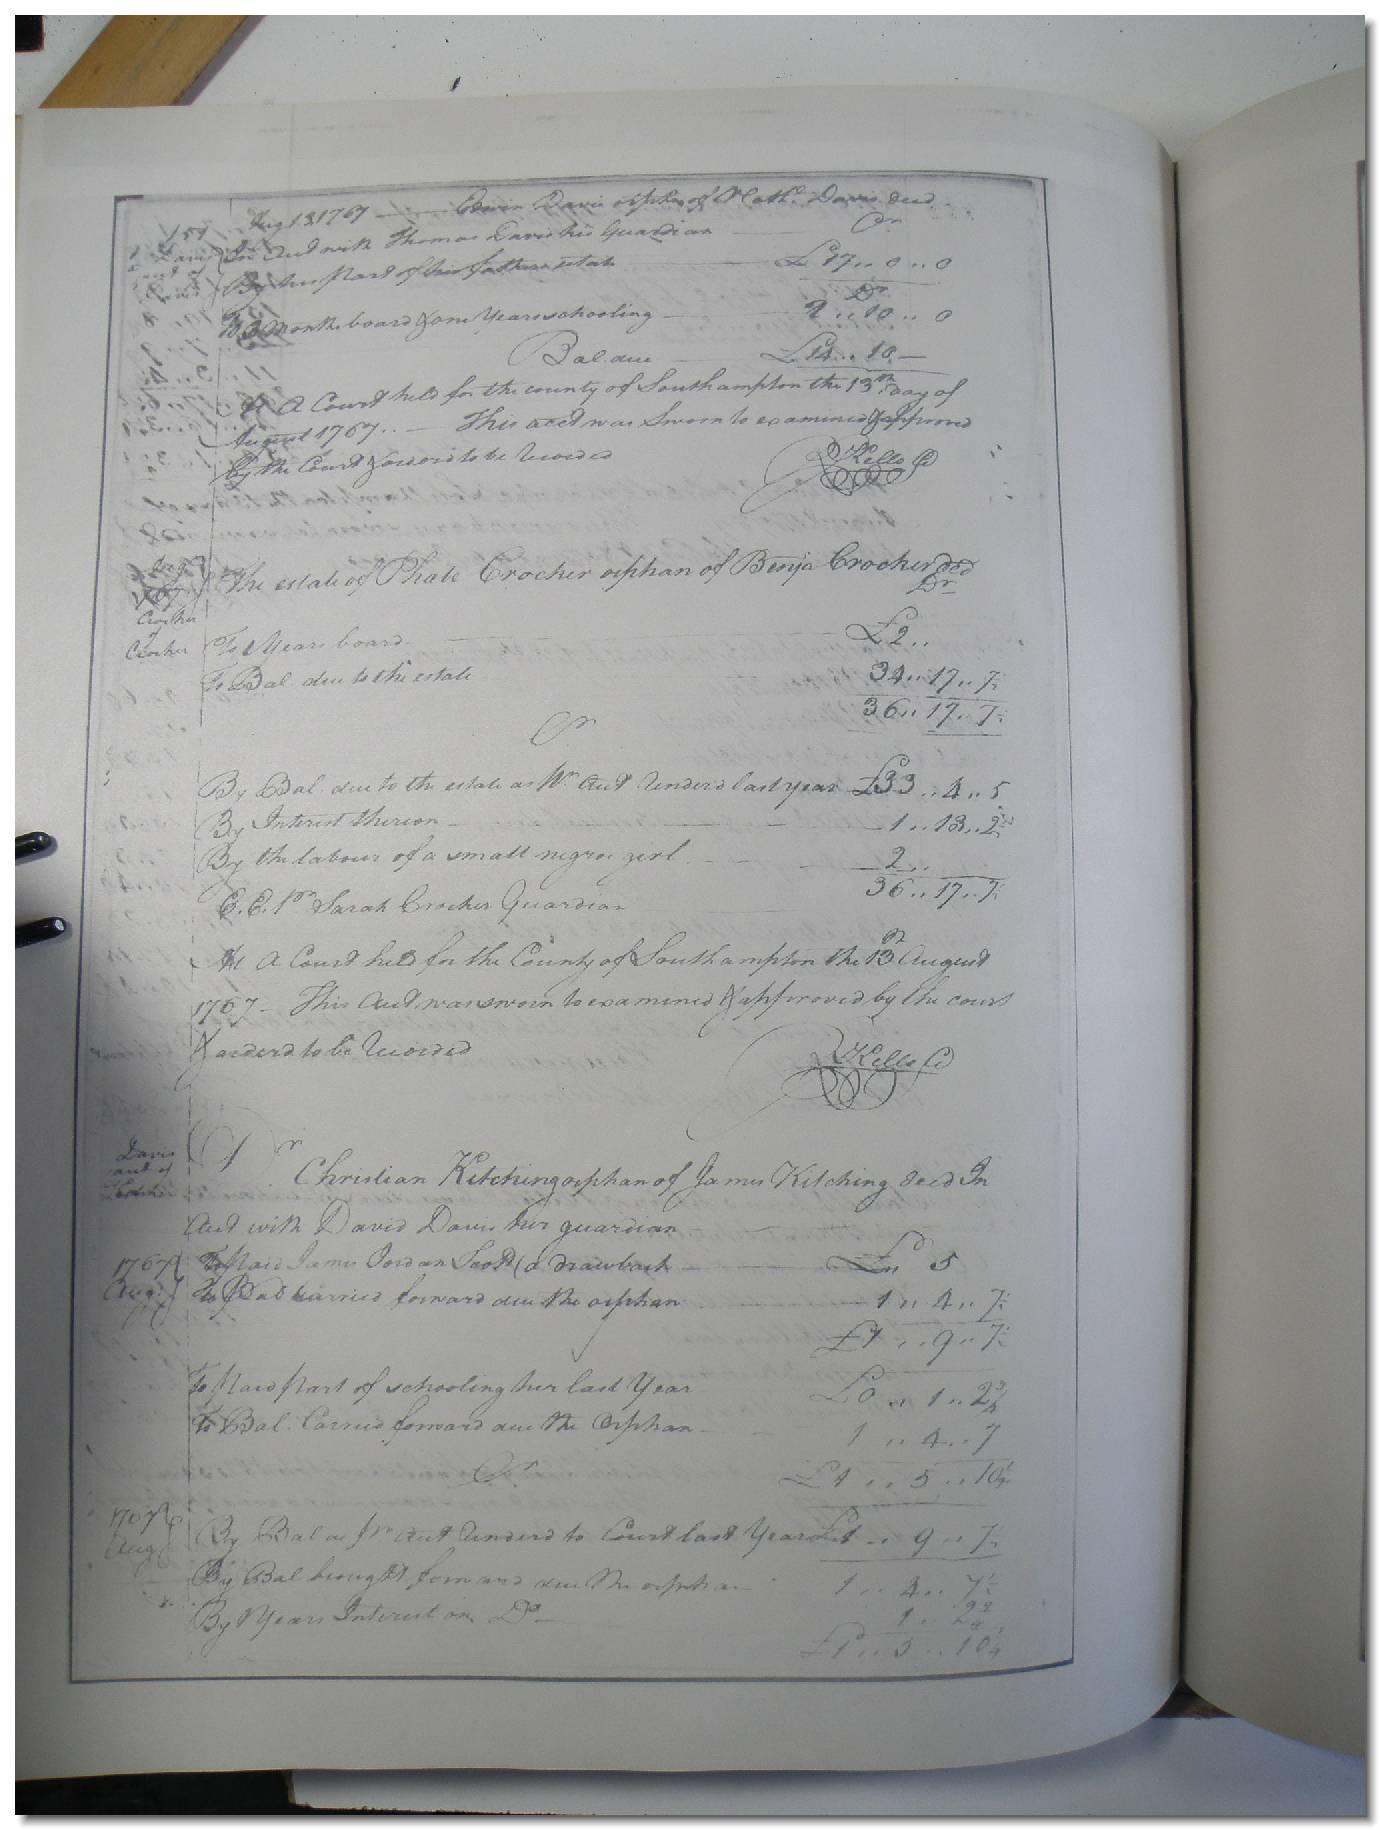 Aug 13 1767 — Edwin Davis orphan of Nath.l Davis decd
159
Davis In Acct with Thomas Davis his Guardian — Cr
acct of
Davis By his part of his fathers estate — £17 .. 0 .. 0
Dr
To 3 Months board & one Years schooling — 2 .. 10 .. 0
Bal. due — £14 .. 10 —
At A Court held for the county of Southampton the 13th day of
August 1767 .. — This acct was Sworn to examined & approved
by the Court & orderd to be Recorded
RKello Cl
The estate of Phate Crocker orphan of Benja Crocker decd
Dr
Crocker
of
Crocker To 1 Years board £2 ..
To Bal. due to the estate 34 .. 17 .. 7½
36 .. 17 .. 7½
Cr
By Bal. due to the estate as Pr. Acct Renderd last year £33 .. 4 .. 5
By Interest thereon — 1 .. 13 .. 2½
By the labour of a small negroe girl — 2 ..
36 .. 17 .. 7½
E. E. Pr Sarah Crocker Guardian
At A Court held for the County of Southampton the 13th August
1767 — This Acct was sworn to examined & approved by the court
& orderd to be Recorded
RKello Cl
Davis
acct of
Dr
Christian Kitching orphan of James Kitching decd In
Acct with David Davis her guardian
1767 To paid James Jordan Scott (a drawback — £ .. 5
Aug: To Bal carried forward due the orphan — 1 .. 4 .. 7½
£1 .. 9 .. 7½
To paid part of schooling her last Year £0 .. 1 .. 2¾
To Bal. Carried forward due the Orphan — 1 .. 4 .. 7
£1 .. 5 .. 10¼
Cr
1767
Aug By Bal as pr acct Renderd to Court last Year £1 .. 9 .. 7½
By Bal brought forward due the orphan 1 .. 4 .. 7½
By 1 Years Interest on Do — 1 .. 2¾
£1 .. 5 .. 10¼